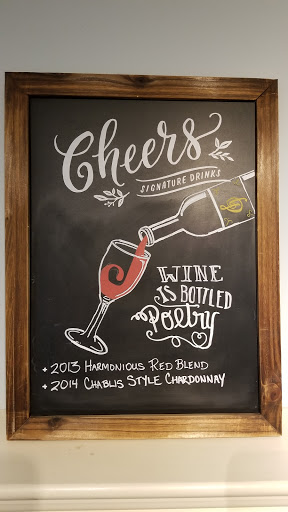 Cheers
SIGNATURE DRINKS
WINE
IS BOTTLED
Poetry
+ 2013 HARMONIOUS RED BLEND
+ 2014 CHABLIS STYLE CHARDONNAY